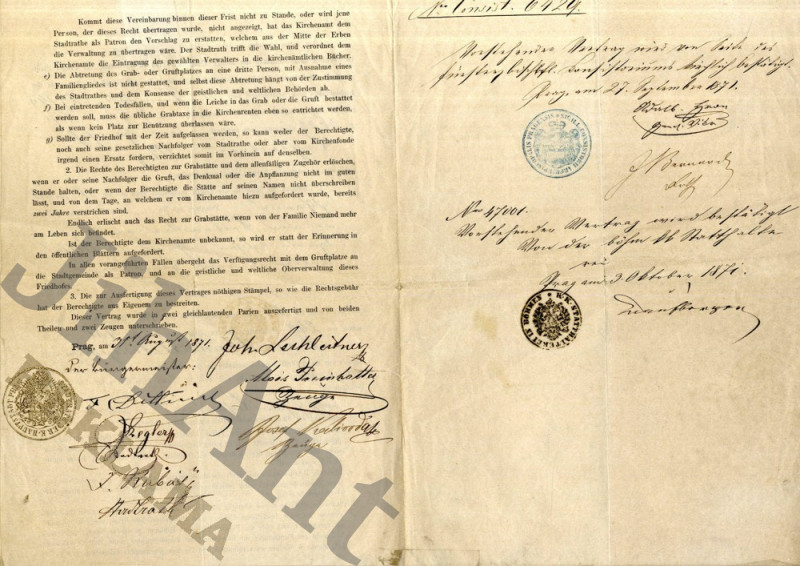 Kommt diese Vereinbarung binnen dieser Frist nicht zu Stande, oder wird jene
Person, der dieses Recht übertragen wurde, nicht angezeigt, hat das Kirchenamt dem
Stadtrathe als Patron den Vorschlag zu erstatten, welchem aus der Mitte der Erben
die Verwaltung zu übertragen wäre. Der Stadtrath trifft die Wahl, und verordnet dem
Kirchenamte die Eintragung des gewählten Verwalters in die kirchenämtlichen Bücher.
e) Die Abtretung des Grab- oder Gruftplatzes an eine dritte Person, mit Ausnahme eines
Familiengliedes ist nicht gestattet, und selbst diese Abtretung hängt von der Zustimmung
des Stadtrathes und dem Konsense der geistlichen und weltlichen Behörden ab.
f) Bei eintretenden Todesfällen, und wenn die Leiche in das Grab oder die Gruft bestattet
werden soll, muss die übliche Grabtaxe in die Kirchenrenten eben so entrichtet werden,
als wenn kein Platz zur Benützung überlassen wäre.
g) Sollte der Friedhof mit der Zeit aufgelassen werden, so kann weder der Berechtigte,
noch auch seine gesetzlichen Nachfolger vom Stadtrathe oder aber vom Kirchenfonde
irgend einen Ersatz fordern, verzichtet somit im Vorhinein auf denselben.
2. Die Rechte des Berechtigten zur Grabstätte und dem allenfälligen Zugehör erlöschen,
wenn er oder seine Nachfolger die Gruft, das Denkmal oder die Anpflanzung nicht im guten
Stande halten, oder wenn der Berechtigte die Stätte auf seinen Namen nicht überschreiben
lässt, und von dem Tage, an welchem er vom Kirchenamte hiezu aufgefordert wurde, bereits
zwei Jahre verstrichen sind.
Endlich erlischt auch das Recht zur Grabstätte, wenn von der Familie Niemand mehr
am Leben sich befindet.
Ist der Berechtigte dem Kirchenamte unbekannt, so wird er statt der Erinnerung in
den öffentlichen Blättern aufgefordert.
In allen vorangeführten Fällen übergeht das Verfügungsrecht mit dem Graftplatze an
die Stadtgemeinde als Patron und an die geistliche und weltliche Oberverwaltung dieses
Friedhofes.
3. Die zur Ausfertigung dieses Vertrages nöthigen Stämpel, so wie die Rechtsgebühr
hat der Berechtigte aus Eigenem zu bestreiten.
Dieser Vertrag wurde in zwei gleichlautenden Parien ausgefertigt und von beiden
Theilen und zwei Zeugen unterschrieben.
Prag, am August 1871.
Der Bürgermeister:
Zeuge
Josef
Zeuge
Stadtrath
No Consist. 6429.
Vorstehender Vertrag wird von Seite des
fürsterzbischöfl. Consistoriums kirchlich bestätigt.
Prag, am 27. September 1871.
No 47001.
Vorstehender Vertrag wird bestätigt
Von der böhm kk Statthalte
rei
Prag am Oktober 1871.
K.K. STATTHALTEREI
JMAnt